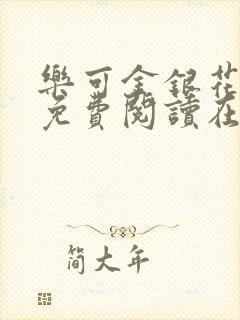 樂可金銀花
免費閱讀在
簡大年